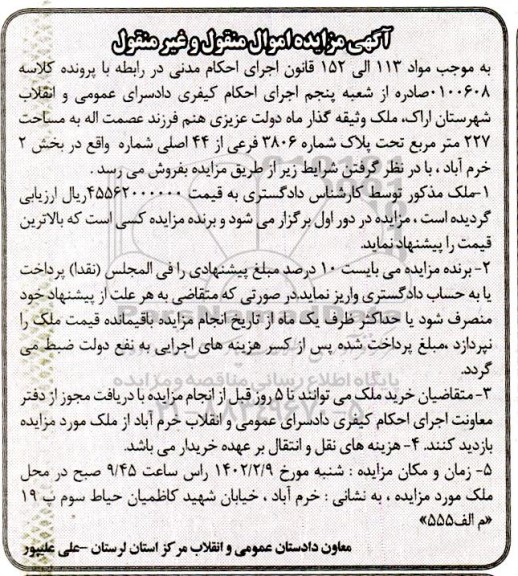 آگهی مزایده اموال منقول و غیر منقول
به موجب مواد ۱۱۳ الی ۱۵۲ قانون اجرای احکام مدنی در رابطه با پرونده کلاسه
۰۱۰۰۶۰۸صادره از شعبه پنجم اجرای احکام کیفری دادسرای عمومی و انقلاب
شهرستان اراک، ملک وثیقه گذار ماه دولت عزیزی هنم فرزند عصمت اله به مساحت
۲۲۷ متر مربع تحت پلاک شماره ۳۸۰۶ فرعی از ۴۴ اصلی شماره واقع در بخش ۲
خرم آباد ، با در نظر گرفتن شرایط زیر از طریق مزایده بفروش می رسد .
۱-ملک مذکور توسط کارشناس دادگستری به قیمت ۴۵۵۶۲۰۰۰۰۰۰ریال ارزیابی
گردیده است ، مزایده در دور اول برگزار می شود و برنده مزایده کسی است که بالاترین
قیمت را پیشنهاد نماید.
۲- برنده مزایده می بایست ۱۰ درصد مبلغ پیشنهادی را فی المجلس (نقدا) پرداخت
یا به حساب دادگستری واریز نماید.در صورتی که متقاضی به هر علت از پیشنهاد خود
منصرف شود یا حداکثر ظرف یک ماه از تاریخ انجام مزایده باقیمانده قیمت ملک را
نپردازد ،مبلغ پرداخت شده پس از کسر هزینه های اجرایی به نفع دولت ضبط می
گردد.
پایگاه اطلاع رسانی مناقصه و مزایده
۳- متقاضیان خرید ملک می توانند تا ۵ روز قبل از انجام مزایده با دریافت مجوز از دفتر
معاونت اجرای احکام کیفری دادسرای عمومی و انقلاب خرم آباد از ملک مورد مزایده
بازدید کنند. ۴- هزینه های نقل و انتقال بر عهده خریدار می باشد.
۵- زمان و مکان مزایده : شنبه مورخ ۱۴۰۲/۲/۹ راس ساعت ۹/۴۵ صبح در محل
ملک مورد مزایده ، به نشانی : خرم آباد ، خیابان شهید کاظمیان حیاط سوم پ ۱۹
«م الف۵۵۵»
معاون دادستان عمومی و انقلاب مرکز استان لرستان –علی علیپور